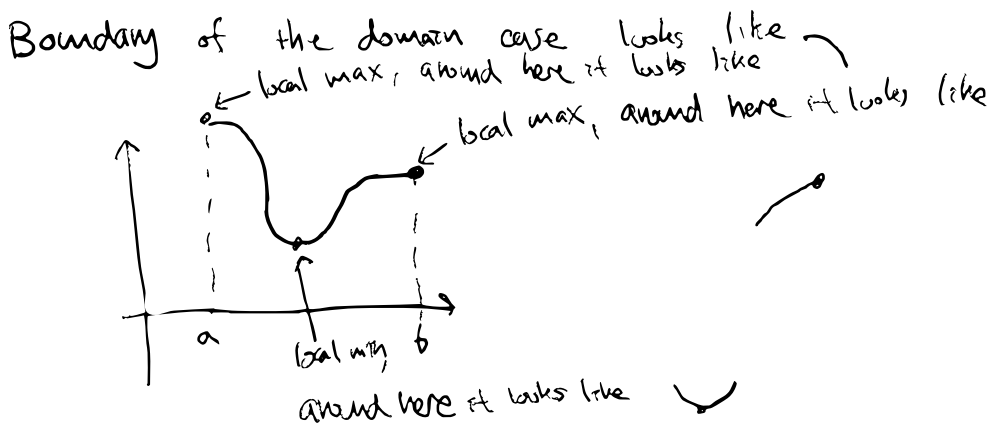 Boundary of the domain case looks like
local max, around here it looks like
local max, around here it looks like
a
b
local min,
around here it looks like